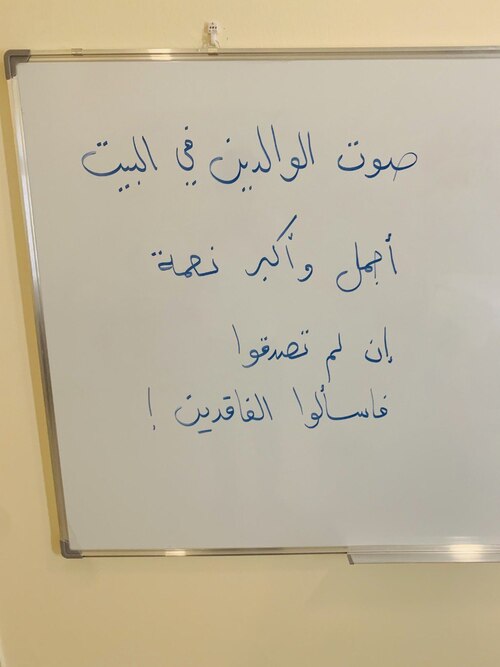 صوت الوالدين في البيت
أجمل وأكبر نعمة
إن لم تصدقوا
فاسألوا الفاقدين !